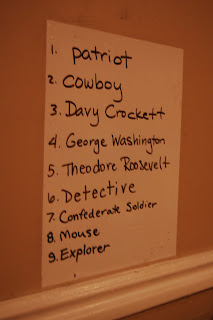 1. patriot
2. Cowboy
3. Davy Crockett
4. George Washington
5. Theodore Roosevelt
6. Detective
7. Confederate Soldier
8. Mouse
9. Explorer